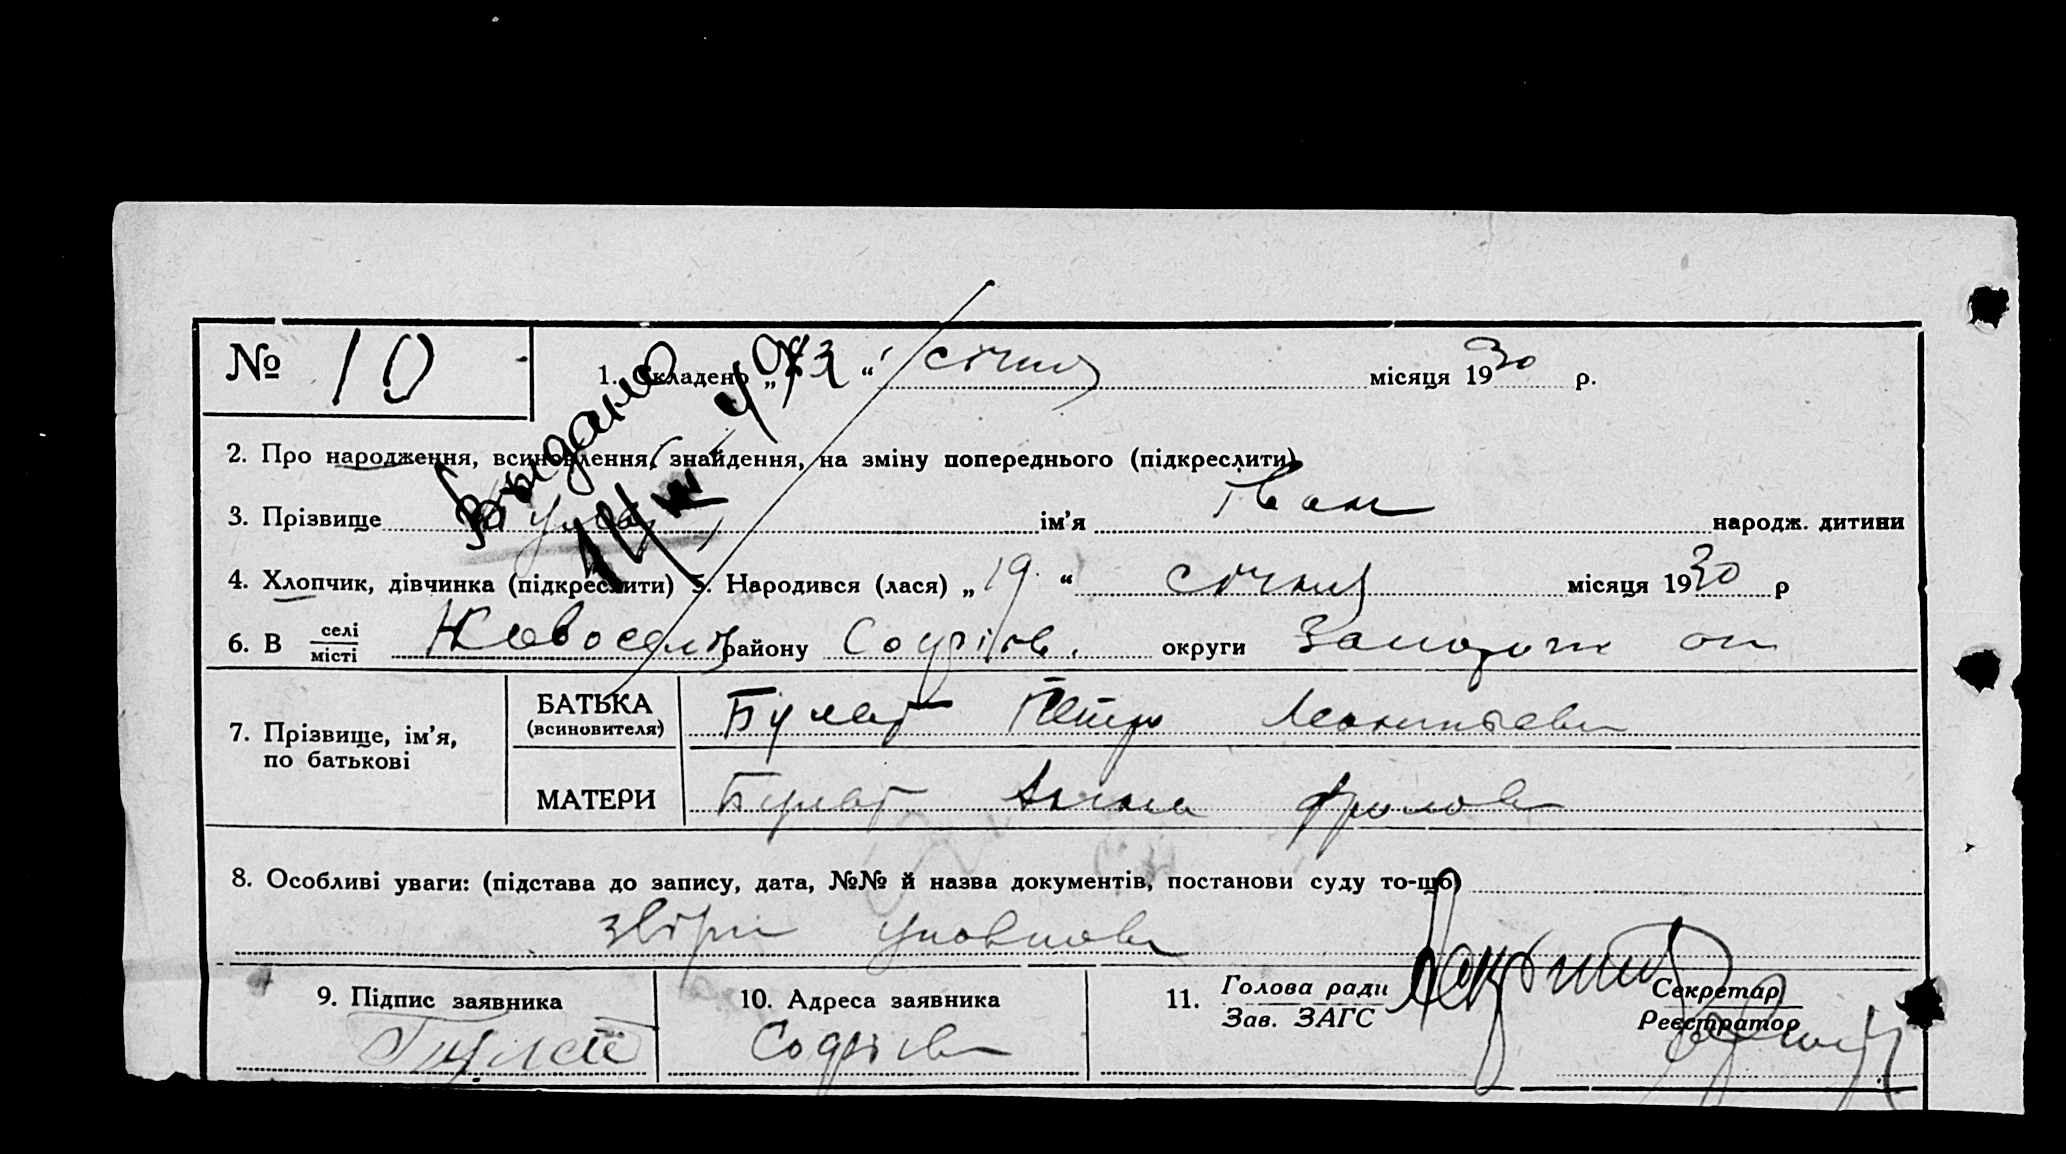 № 10
1. Складено „ 23 “ січня місяця 1930 р.
Выдано
2. Про народження, всиновлення, знайдення, на зміну попереднього (підкреслити)
3. Прізвище Булат ім'я Іван народж. дитини
4. Хлопчик, дівчинка (підкреслити) 5. Народився (лася) „ 19 “ січня місяця 1930 р
6. В селі Новоселі району округи
місті
7. Прізвище, ім'я, по батькові
БАТЬКА (всиновителя) Булат Петро Леонтьев
МАТЕРИ Булат Анна Фролов
8. Особливі уваги: (підстава до запису, дата, №№ й назва документів, постанови суду то-що)
9. Підпис заявника
Булат
10. Адреса заявника
11. Голова ради
Зав. ЗАГС
Секретар
Реєстратор